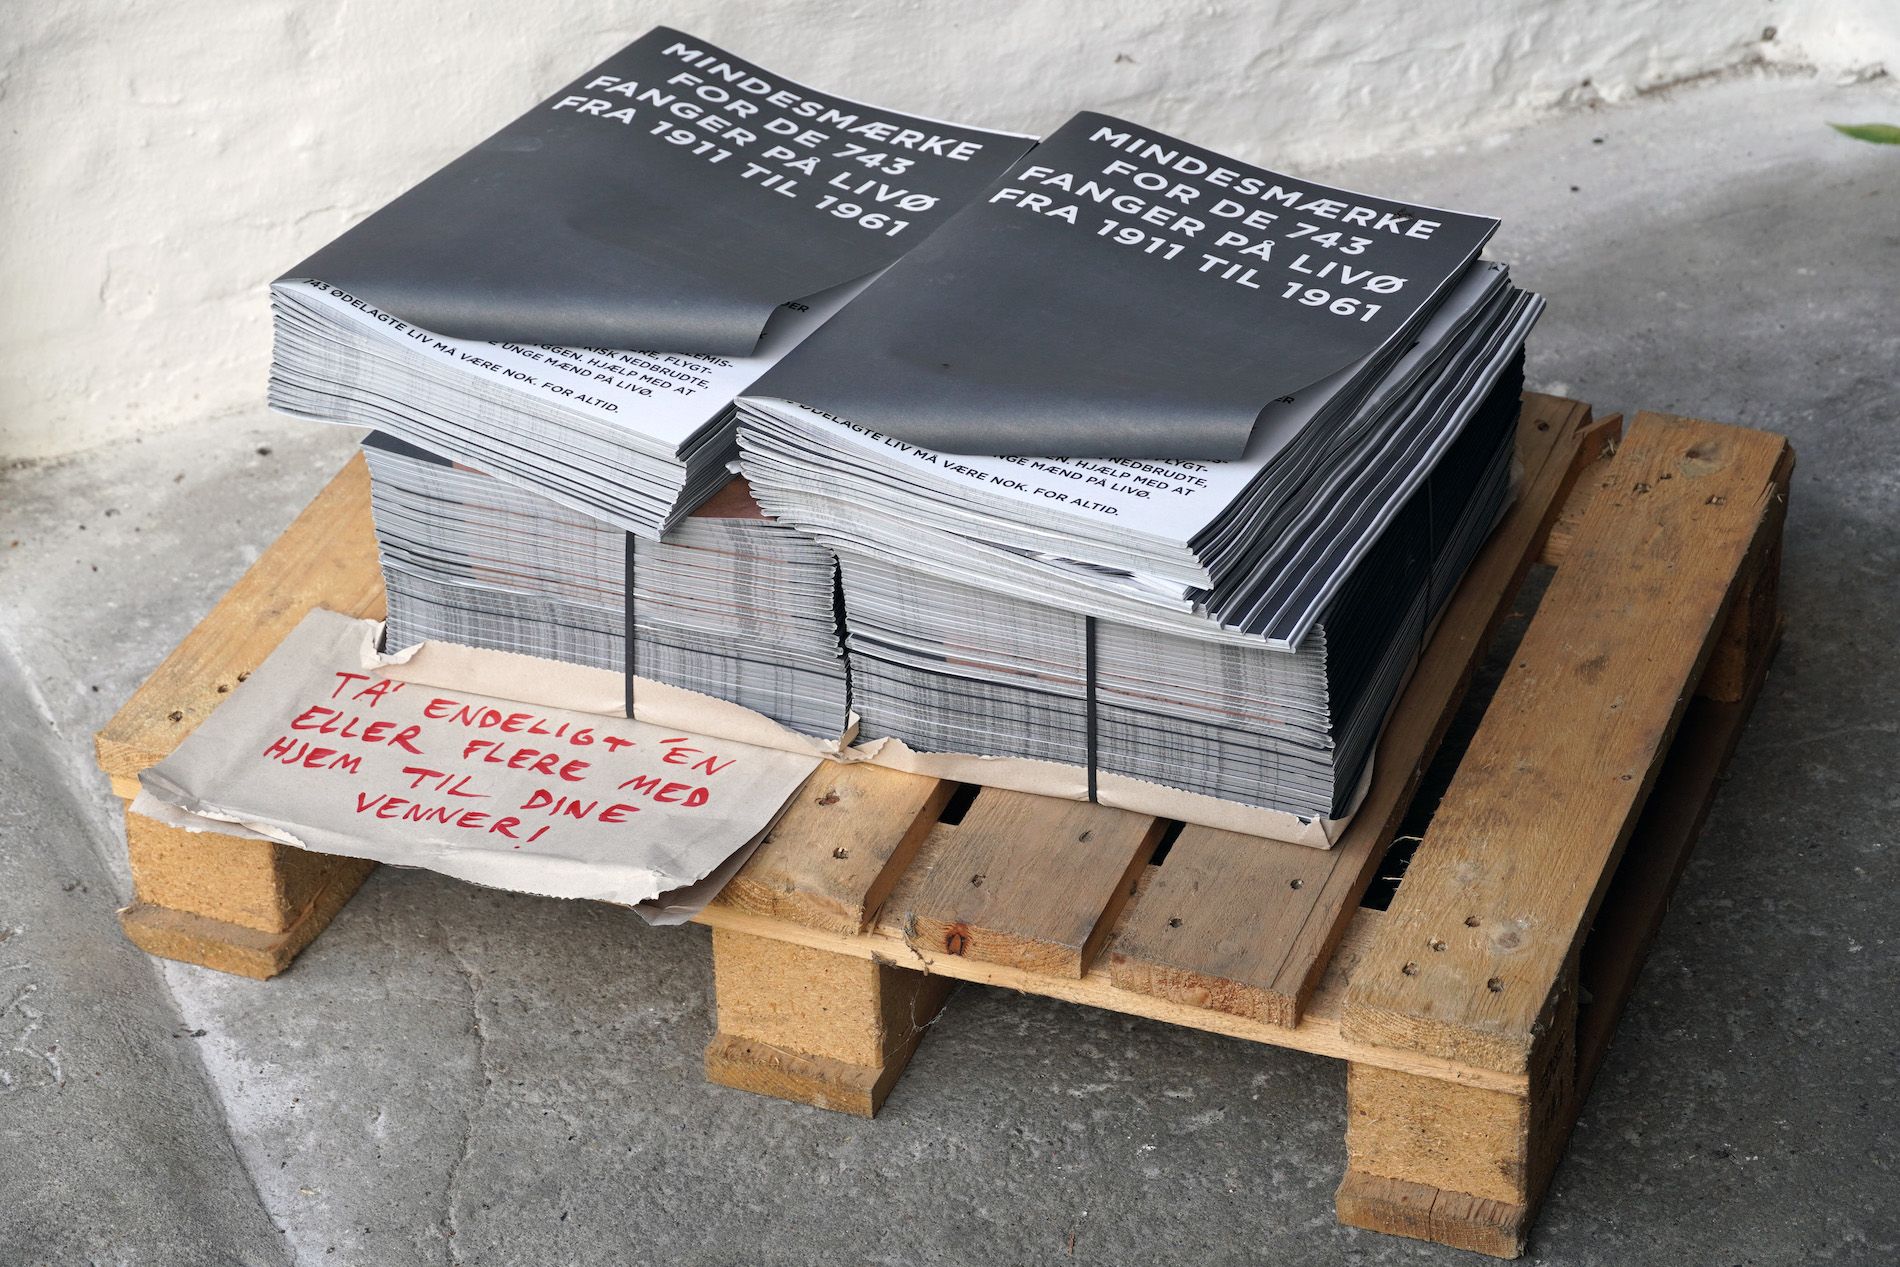 MINDESMÆRKE
FOR DE 743
FANGER PÅ LIVØ
FRA 1911 TIL 1961
743 ØDELAGTE LIV MÅ VÆRE NOK. FOR ALTID.
FLYGT-
NEDBRUDTE,
UNGE MÆND PÅ LIVØ. HJÆLP MED AT
MINDESMÆRKE
FOR DE 743
FANGER PÅ LIVØ
FRA 1911 TIL 1961
ØDELAGTE LIV MÅ VÆRE NOK. FOR ALTID.
FLYGT-
NEDBRUDTE,
HJÆLP MED AT
MÆND PÅ LIVØ.
TA' ENDELIGT ÉN
ELLER FLERE MED
HJEM TIL DINE
VENNER!